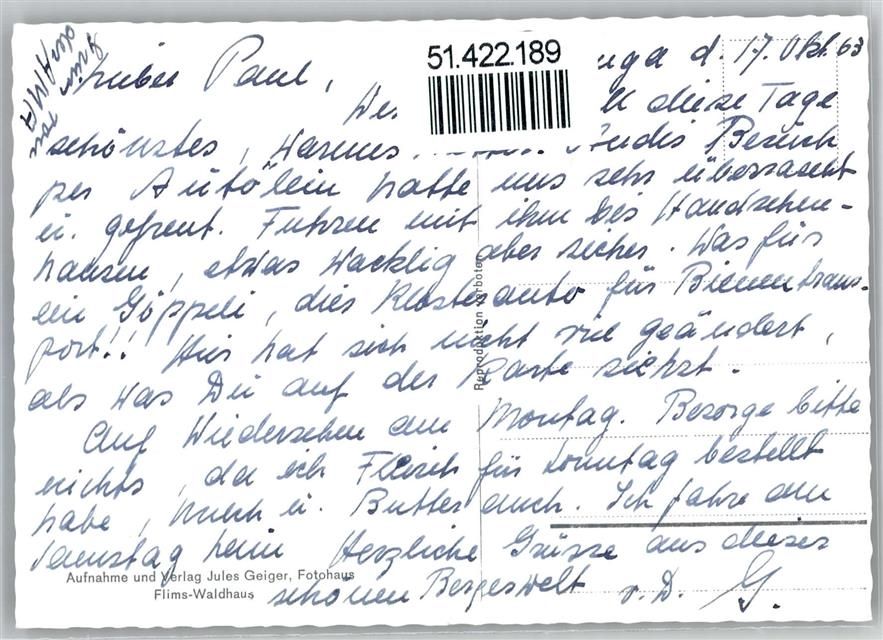 51.422.189
d. 17. Okt. 63
Lieber Paul,
diese Tage
schönstes, warmes Besuch
per Autölein hatte uns sehr überrascht
u. gefreut. Fuhren mit ihm bis Handschen-
hausen, etwas wacklig aber sicher. Was für
ein Göppeli, dies Klosterauto für Bienentrans-
port!! Hier hat sich nicht viel geändert,
als was Du auf der Karte siehst.
Auf Wiedersehen am Montag. Besorge bitte
nichts, da ich Fleisch für Sonntag bestellt
habe, Milch u. Butter auch. Ich fahre am
Samstag heim Herzliche Grüsse aus dieser
schönen Bergeswelt v. D. G.
Reproduktion verboten
Aufnahme und Verlag Jules Geiger, Fotohaus
Flims-Waldhaus